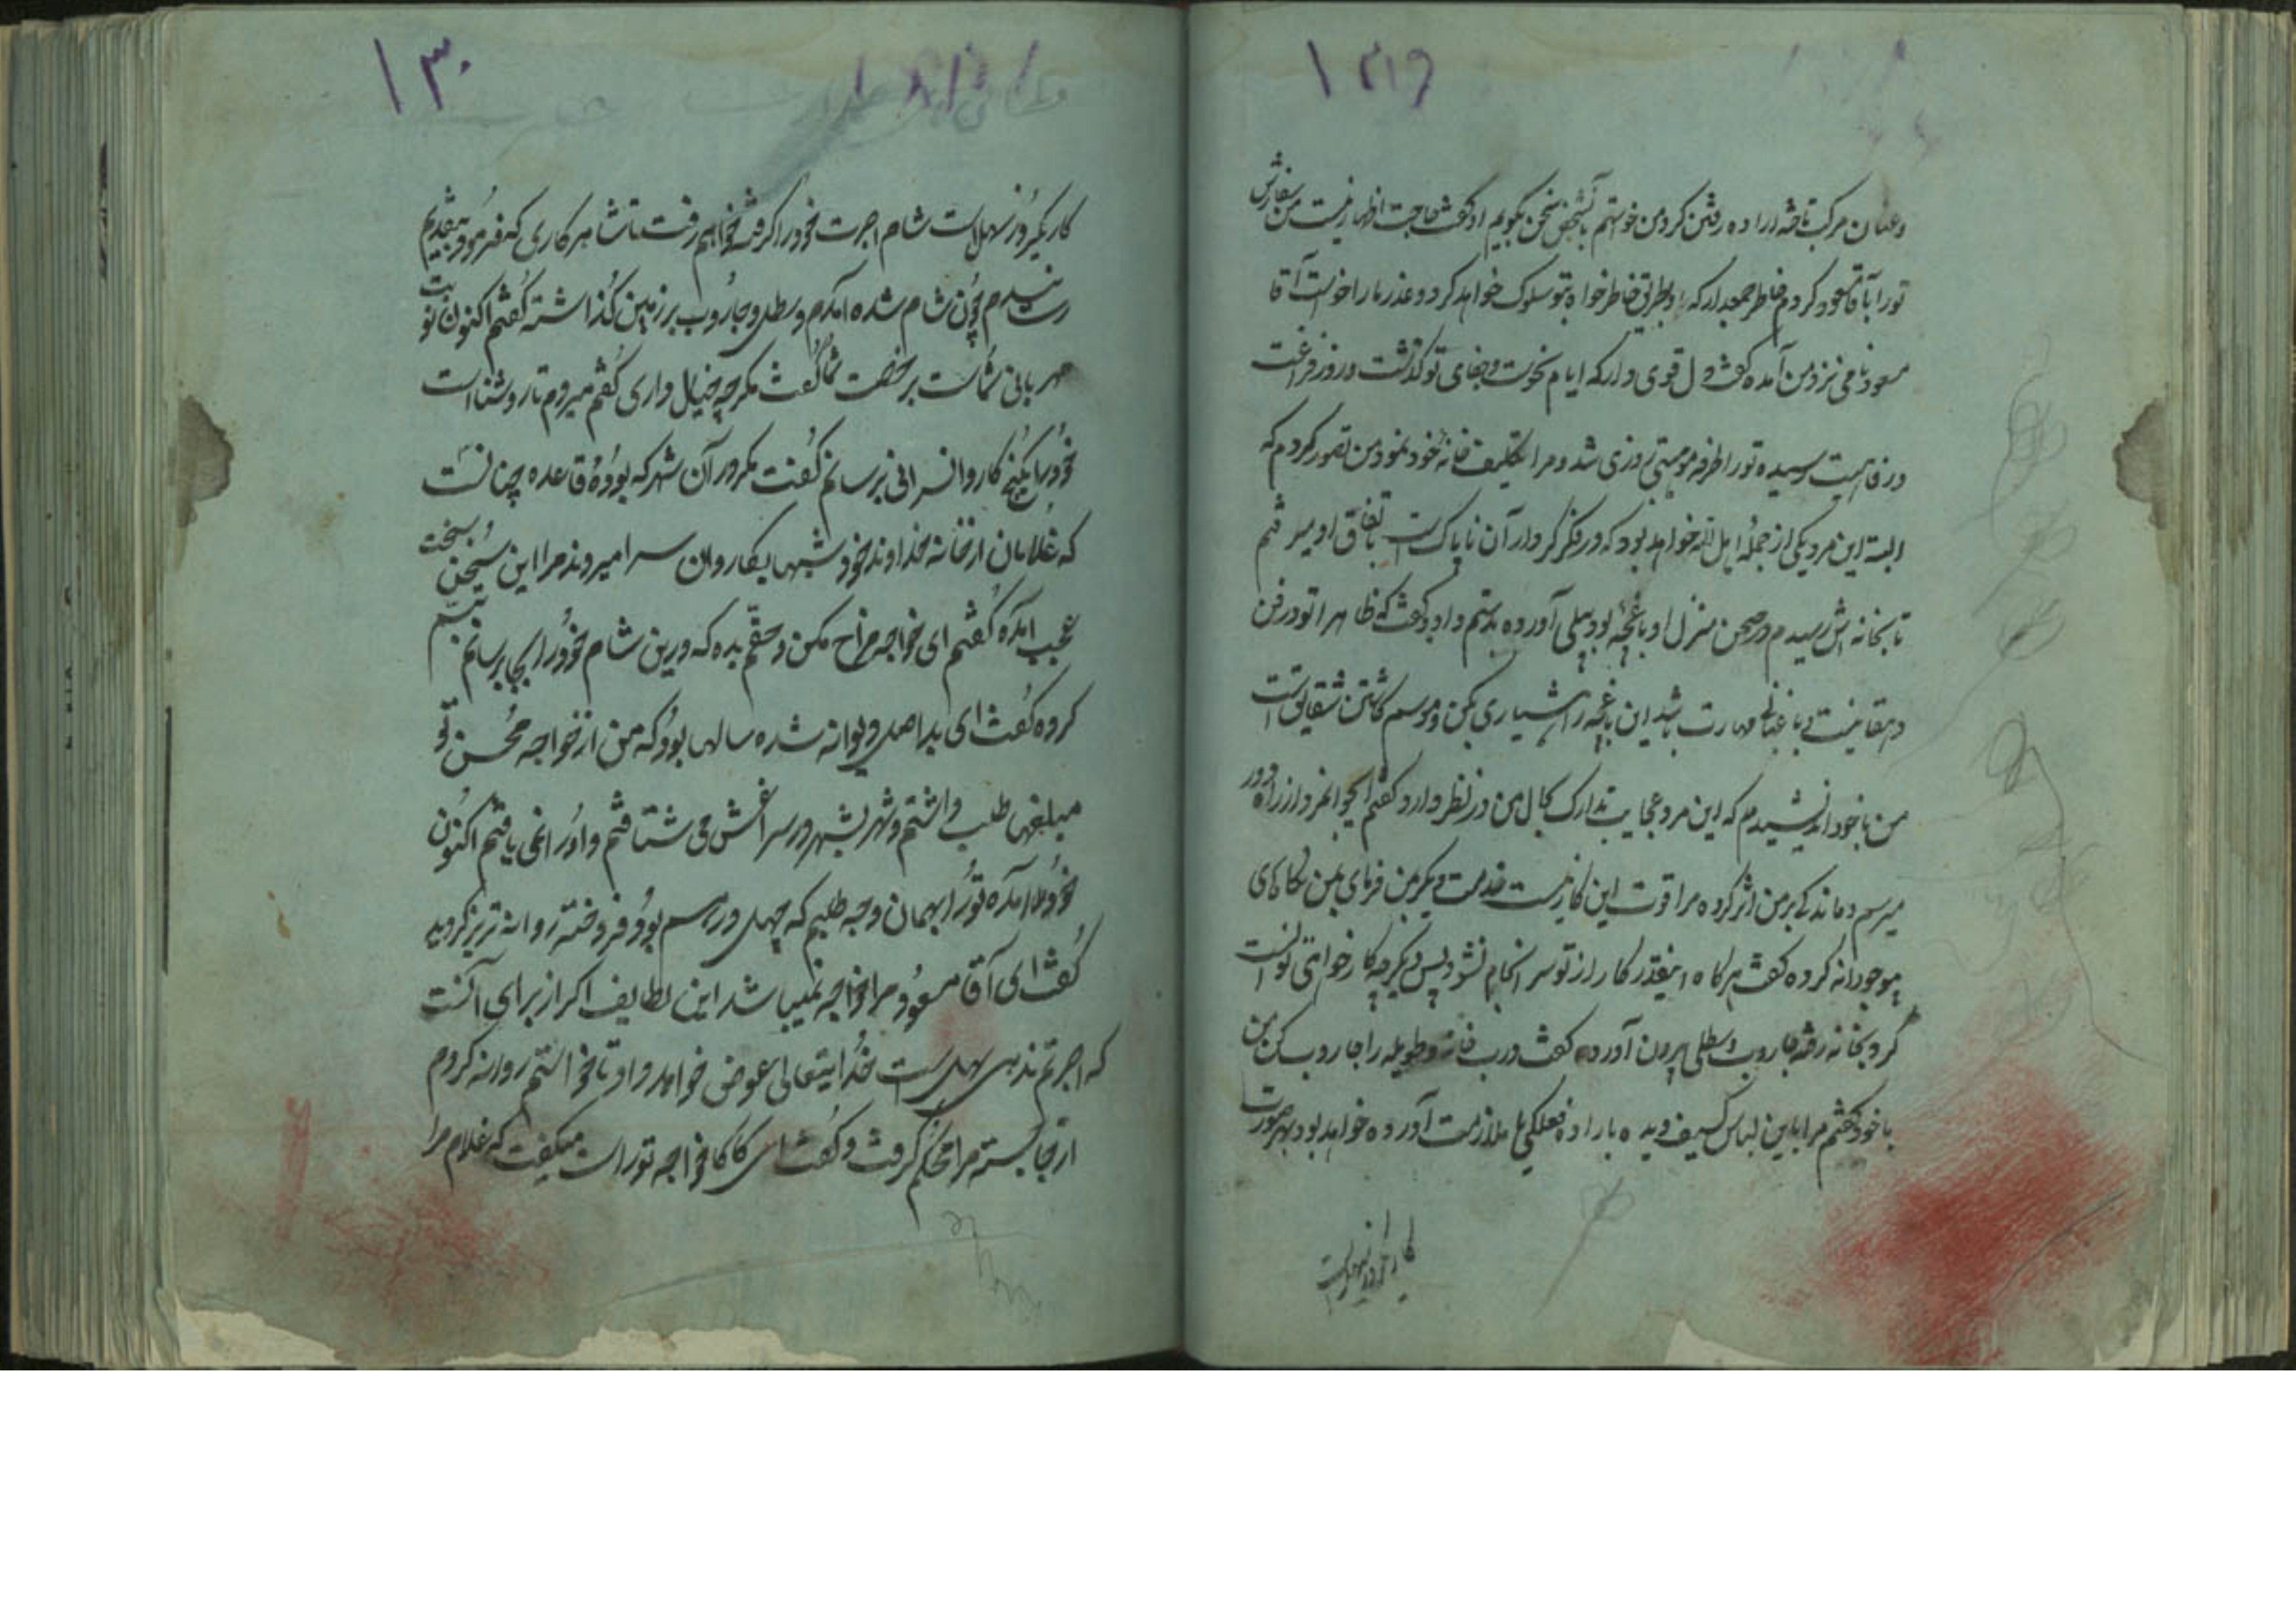 ۱۲۹
وعنان مرکب تافته اراده رفتن کرد من خواستم بآنشخص سخن بگویم او گفت حاجت اظهار نیست من سفارش
تو را بآقا مسعود کردم خاطر جمعدار که او بطریق خاطرخواه بتو سلوک خواهد کرد و عذر ما را خواست آقا
مسعود نامی نزد من آمده گفت دل قوی دار که ایام نحوست و جفای تو گذشت و روز فراغت
و رفاهیت رسیده تو را طرفه موهبتی روزی شد و مرا تکلیف خانه خود نمود من تصور کردم که
البته این مرد یکی از جمله اهل الله خواهد بود که در فکر کردار آن ناپاکست باتفاق او میرفتم
تا بخانه اش رسیدم در صحن منزل او باغچه بود بیلی آورده بدستم داد و گفت که ظاهرا تو در فن
دهقانیت و باغبانی مهارت باشد این باغچه را شیاری بکن و موسم کاشتن شقایق است
من با خود اندیشیدم که این مرد عجایب تدارک بحال من در نظر دارد گفتم ایجوانمرد از راه دور
میرسم و ماندگی بر من اثر کرده مرا قوت این کار نیست خدمت دیگر بمن فرمای بمن نگاهای
موجودانه کرده گفت هرگاه اینقدر کار از تو سرانجام نشود پس دیگر چه کار خواهی توانست
کرد بخانه رفته جاروب و سطلی بیرون آورده گفت درب خانه و طویله را جاروب کن من
با خود گفتم مرا باین لباس کثیف دیده باراده فعلگی یا ملازمت آورده خواهد بود بهر صورت
کار یکروز سهل است
۱۳۰
کار یکروز سهل است شام اجرت خود را گرفته خواهم رفت تا شام هر کاری که فرمود بتقدیم
رسانیدم چون شام شده آمدم و سطل و جاروب بر زمین گذاشته گفتم اکنون نوبت
مهربانی شماست بر خصت شما گفت مگر چه خیال داری گفتم میروم تا روشنا است
خود را بکنج کاروانسرائی برسانم گفت مگر در آن شهر که بوده قاعده چنانست
که غلامان از خانه خداوند خود شبها بکاروان سرا میروند مرا این سخن سخت
عجب آمده گفتم ای خواجه مزاح مکن و حقم بده که درین شام خود را بجا برسانم تبسم
کرده گفت ای بد اصل دیوانه شده سالها بود که من از خواجه محسن تو
مبلغها طلب داشتم و شهر بشهر در سراغش می شتافتم و او را نمی یافتم اکنون
خود آمده تو را بهمان وجه طلبم که چهل درهم بود فروخته روانه تبریز گردید
گفت ای آقا مسعود مرا خواجه نمیباشد این لطایف اگر از برای آنست
که اجرتم ندهی سهل است خدایتعالی عوض خواهد داد تا خواستم روانه گردم
از جا جسته مرا محکم گرفت و گفت ای کاکا خواجه تو راست میگفت که غلام مرا